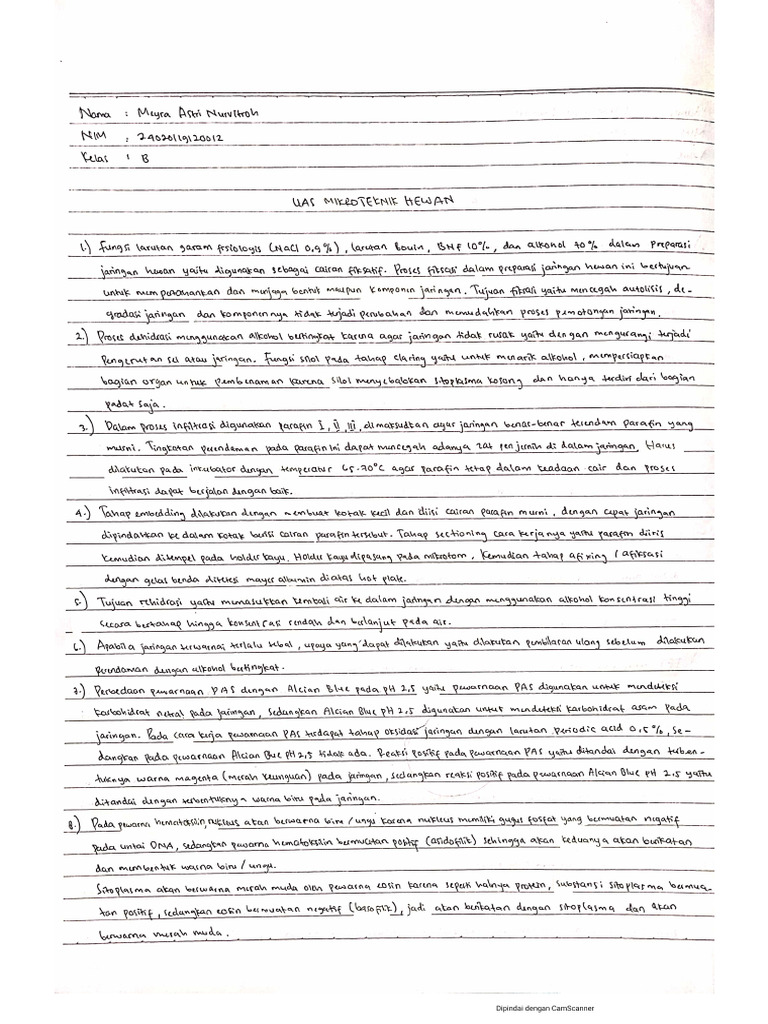 Nama : Meyra Astri Nurvitroh
NIM : 24020119120012
Kelas : B
UAS MIKROTEKNIK HEWAN
1.) Fungsi larutan garam fisiologis (NaCl 0,9%), larutan Bouin, BNF 10%, dan alkohol 70% dalam preparasi
jaringan hewan yaitu digunakan sebagai cairan fiksatif. Proses fiksasi dalam preparasi jaringan hewan ini bertujuan
untuk mempertahankan dan menjaga bentuk maupun komponen jaringan. Tujuan fiksasi yaitu mencegah autolisis, de-
gradasi jaringan dan komponennya tidak terjadi perubahan dan memudahkan proses pemotongan jaringan.
2.) Proses dehidrasi menggunakan alkohol bertingkat karena agar jaringan tidak rusak yaitu dengan mengurangi terjadi
pengerutan sel atau jaringan. Fungsi silol pada tahap claring yaitu untuk menarik alkohol, mempersiapkan
bagian organ untuk pembenaman karena silol menyebabkan sitoplasma kosong dan hanya terdiri dari bagian
padat saja.
3.) Dalam proses infiltrasi digunakan parafin I, II, III, dimaksudkan agar jaringan benar-benar terendam parafin yang
murni. Tingkatan perendaman pada parafin ini dapat mencegah adanya zat penjernih di dalam jaringan. Harus
dilakukan pada inkubator dengan temperatur 65-70°C agar parafin tetap dalam keadaan cair dan proses
infiltrasi dapat berjalan dengan baik.
4.) Tahap embedding dilakukan dengan membuat kotak kecil dan diisi cairan parafin murni, dengan cepat jaringan
dipindahkan ke dalam kotak berisi cairan parafin tersebut. Tahap sectioning cara kerjanya yaitu parafin diiris
kemudian ditempel pada holder kayu. Holder kayu dipasang pada mikrotom, kemudian tahap afixing / afiksasi
dengan gelas benda ditetesi mayer albumin diatas hot plate.
5.) Tujuan rehidrasi yaitu memasukkan kembali air ke dalam jaringan dengan menggunakan alkohol konsentrasi tinggi
secara bertahap hingga konsentrasi rendah dan berlanjut pada air.
6.) Apabila jaringan terwarnai terlalu tebal, upaya yang dapat dilakukan yaitu dilakukan pembilasan ulang sebelum dilakukan
perendaman dengan alkohol bertingkat.
7.) Perbedaan pewarnaan PAS dengan Alcian Blue pada pH 2,5 yaitu pewarnaan PAS digunakan untuk mendeteksi
karbohidrat netral pada jaringan, sedangkan Alcian Blue pH 2,5 digunakan untuk mendeteksi karbohidrat asam pada
jaringan. Pada cara kerja pewarnaan PAS terdapat tahap oksidasi jaringan dengan larutan periodic acid 0,5%, se-
dangkan pada pewarnaan Alcian Bue pH 2,5 tidak ada. Reaksi positif pada pewarnaan PAS yaitu ditandai dengan terben-
tuknya warna magenta (merah keunguan) pada jaringan, sedangkan reaksi positif pada pewarnaan Alcian Blue pH 2,5 yaitu
ditandai dengan terbentuknya warna biru pada jaringan.
8.) Pada pewarna hematoksilin, nukleus akan berwarna biru / ungu karena nukleus memiliki gugus fosfat yang bermuatan negatif
pada untai DNA, sedangkan pewarna hematoksilin bermuatan positif (asidofilik) sehingga akan keduanya akan berikatan
dan membentuk warna biru / ungu.
Sitoplasma akan berwarna merah muda oleh pewarna eosin karena seperti halnya protein, substansi sitoplasma bermua-
tan positif, sedangkan eosin bermuatan negatif (basofilik), jadi akan berikatan dengan sitoplasma dan akan
berwarna merah muda.
Dipindai dengan CamScanner